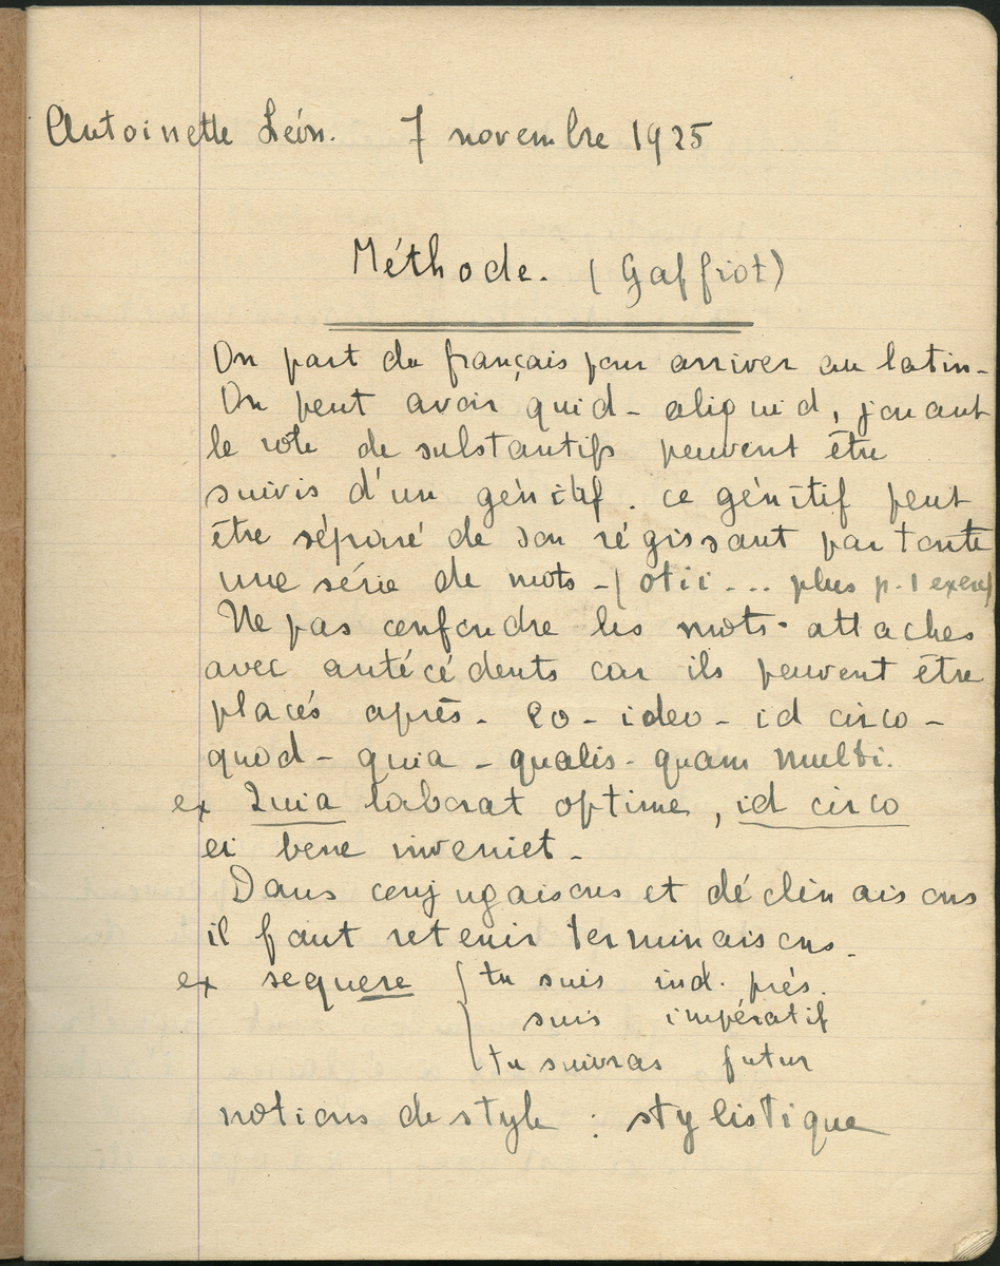 Antoinette Léon. 7 novembre 1925
Méthode. (Gaffiot)
On part du français pour arriver au latin -
On peut avoir quid - aliquid, jouant
le rôle de substantifs peuvent être
suivis d'un génitif. ce génitif peut
être séparé de son régissant par toute
une série de mots - (otii ... plus p. 1 exerc)
Ne pas confondre les mots - attaches
avec antécédents car ils peuvent être
placés après - eo - ideo - id circo -
quod - quia - qualis - quam multi.
ex Quia laborat optime, id circo
ei bene inveniet -
Dans conjugaisons et déclinaisons
il faut retenir terminaisons -
ex sequere { tu suis ind. prés.
suis impératif
tu suivras futur
notions de style : stylistique